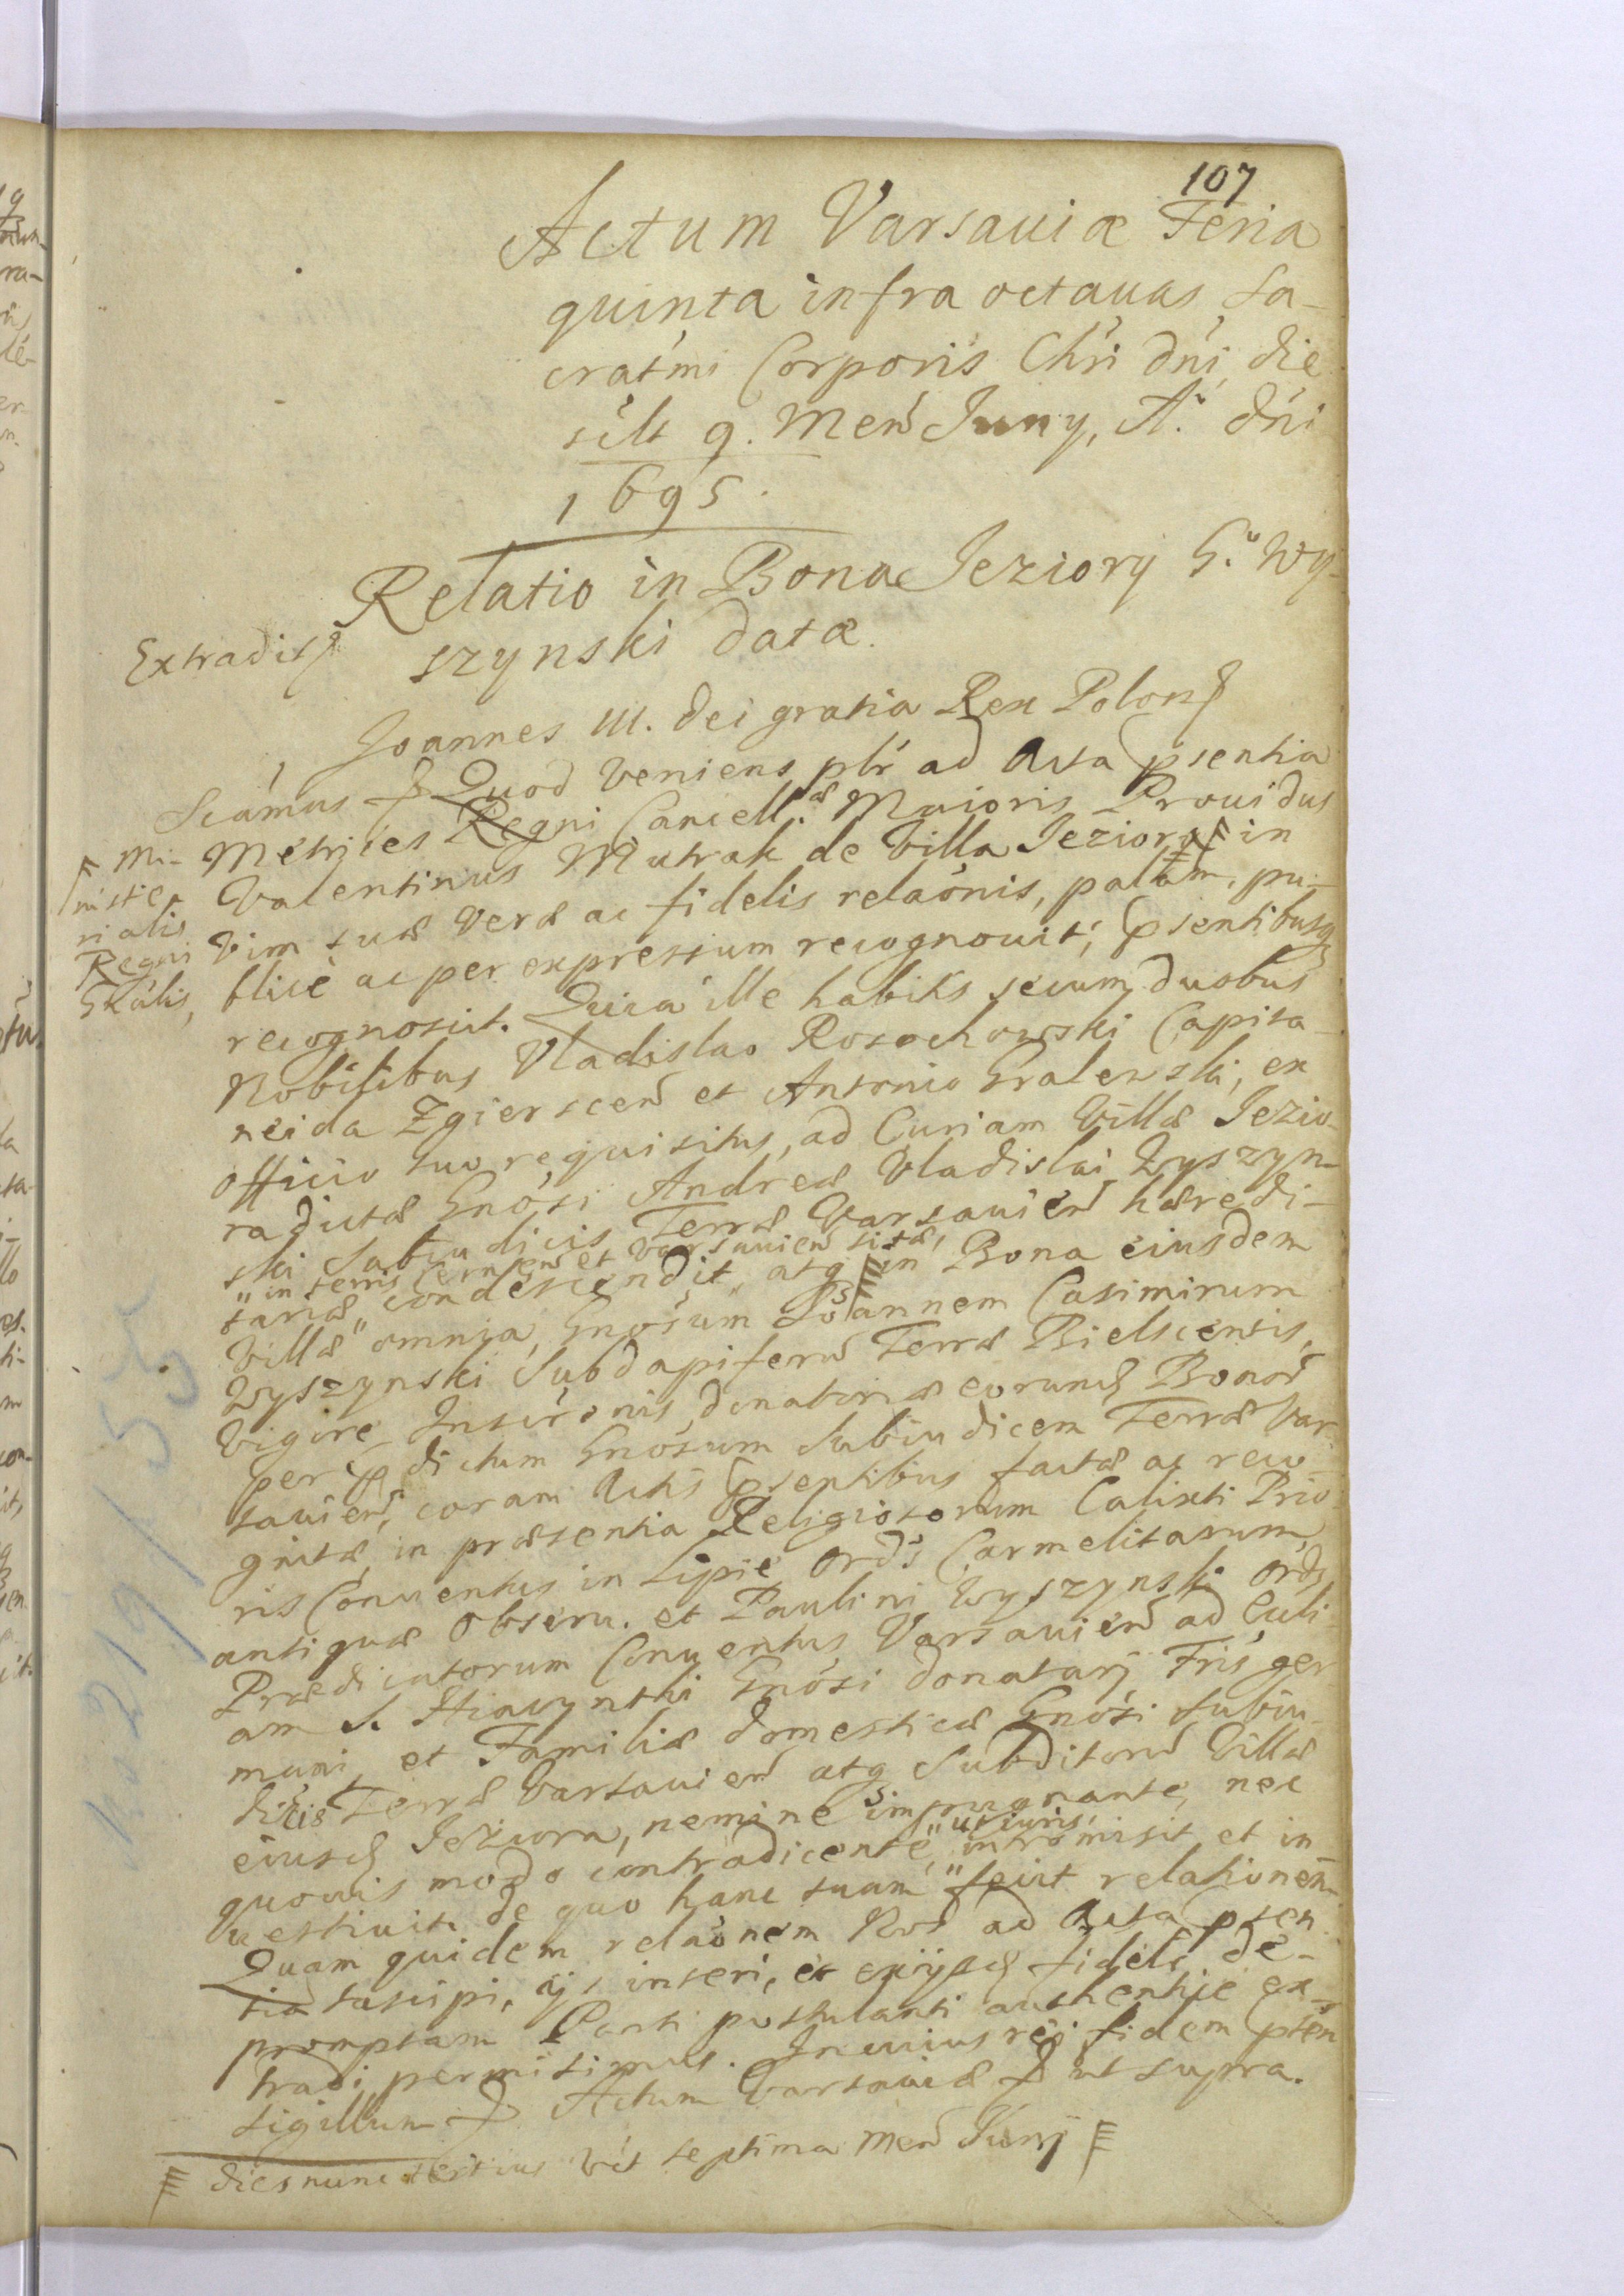 107
Actum Varsaviæ Feria
quinta infra octauas Sa-
cratmi Corporis Chri dni die
silt 9. Men Juny, A.° dni
1695.
Relatio in Bona Jeziory G.° Wy-
szynski datæ.
Extradit
Joannes III. dei gratia Rex Polon
Scamus Quod veniens plr ad Acta psentia
Metrices Regni Cancell.æ Maioris Prouidus
Valentinus Mutrak de Villa Jeziora in
Mi-
niste-
rialis
Regni
Gñalis,
vim suæ veræ ac fidelis relaonis, palam, pu-
blicè ac per expressum recognouit, psentibusq
recognoscit. Quia ille habitis secum duobus
Nobilibus Vladislao Rosochowski Capita-
neida Zgierscen et Antonio Gralewski, ex
officio suo requisitus, ad Curiam Villæ Jezio-
ra dictæ Gnosi Andreæ Vladislai Wyszyn-
ski Subiudicis Terræ Varsauien hæredi-
" in terris Cernen et Varsauien sitæ,
tariæ" condescendit, atq in Bona eiusdem
Villæ omnia, Gnosum Joannem Casimirum
Wyszynski Subdapiferu Terræ Bielscensis,
Vigore Inscronis donatoriæ eorund Bonor
per pdictum Gnosum Subiudicem Terræ Var-
sauien, coram Actis psentibus factæ ac reco-
gnitæ, in præsentia Religiosorum Calixti Prio-
ris Conuentus in Lipie Ordis Carmelitarum
antiquæ Obseru. et Paulini Wyszynski Ordis
Prædicatorum Conuentus Varsauien ad Eccli-
am S. Hiacynthi Gnosi donatarÿ Fris ger-
mani, et Familiæ domesticæ Gnosi Subiu-
dicis Terræ Varsauien atq Subditoru Villæ
eiusd Jeziora, nemine impugnante, nec
quouis modo contradicente, " uti iuris, intromisit et in-
uestiuit. de quo hanc suam " fecit relationem.
Quam quidem relaonem Nos ad Acta psen-
tia suscipi, ijs inseri, et exijsd fideli de-
promptam Parti postulanti authentice ex-
tradi permisimus. In cuius rei fidem psen
sigillum Actum Varsauiæ ut supra.
dies nunc tertius vèt septima Men Junÿ